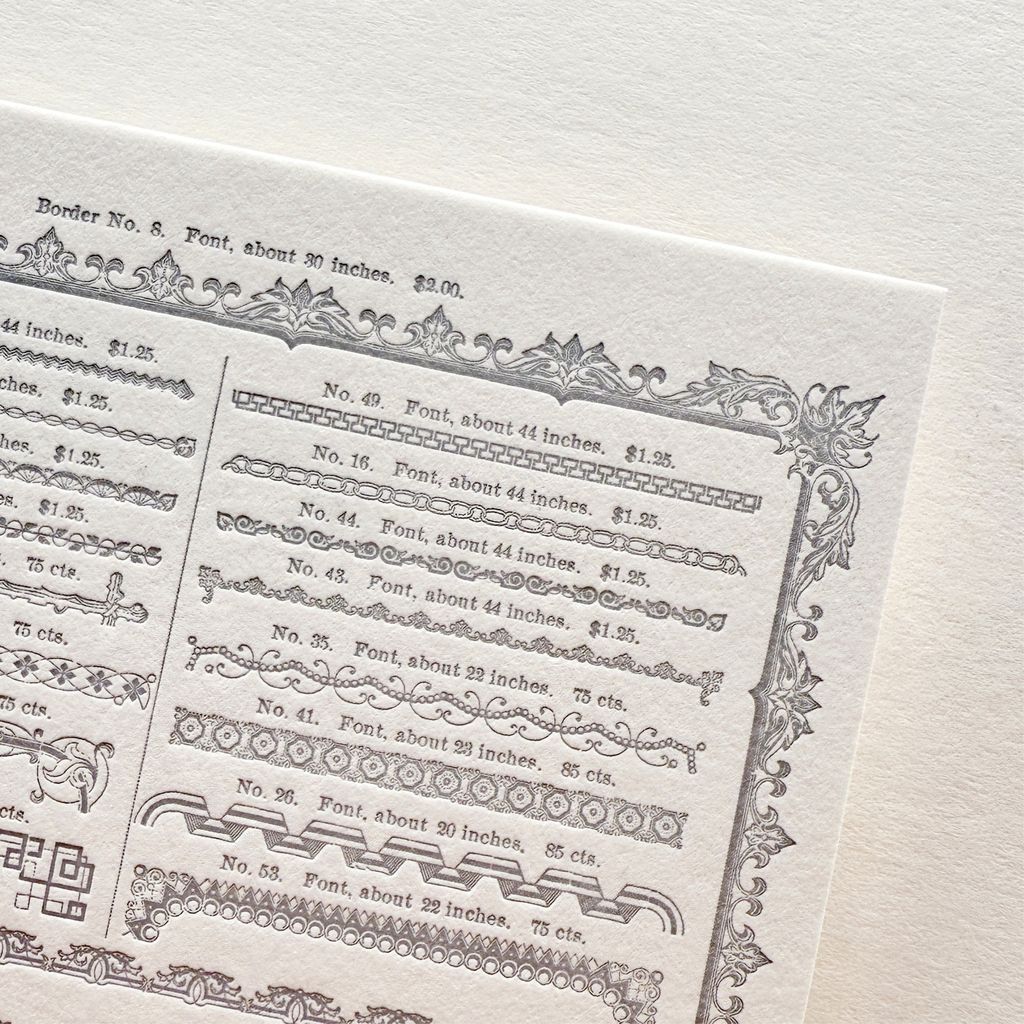 Border No. 8. Font, about 30 inches. $2.00.
44 inches. $1.25.
ches. $1.25.
hes. $1.25.
es. $1.25.
. 75 cts.
75 cts.
75 cts.
cts.
No. 49. Font, about 44 inches. $1.25.
No. 16. Font, about 44 inches. $1.25.
No. 44. Font, about 44 inches. $1.25.
No. 43. Font, about 44 inches. $1.25.
No. 35. Font, about 22 inches. 75 cts.
No. 41. Font, about 23 inches. 85 cts.
No. 26. Font, about 20 inches. 85 cts.
No. 53. Font, about 22 inches. 75 cts.